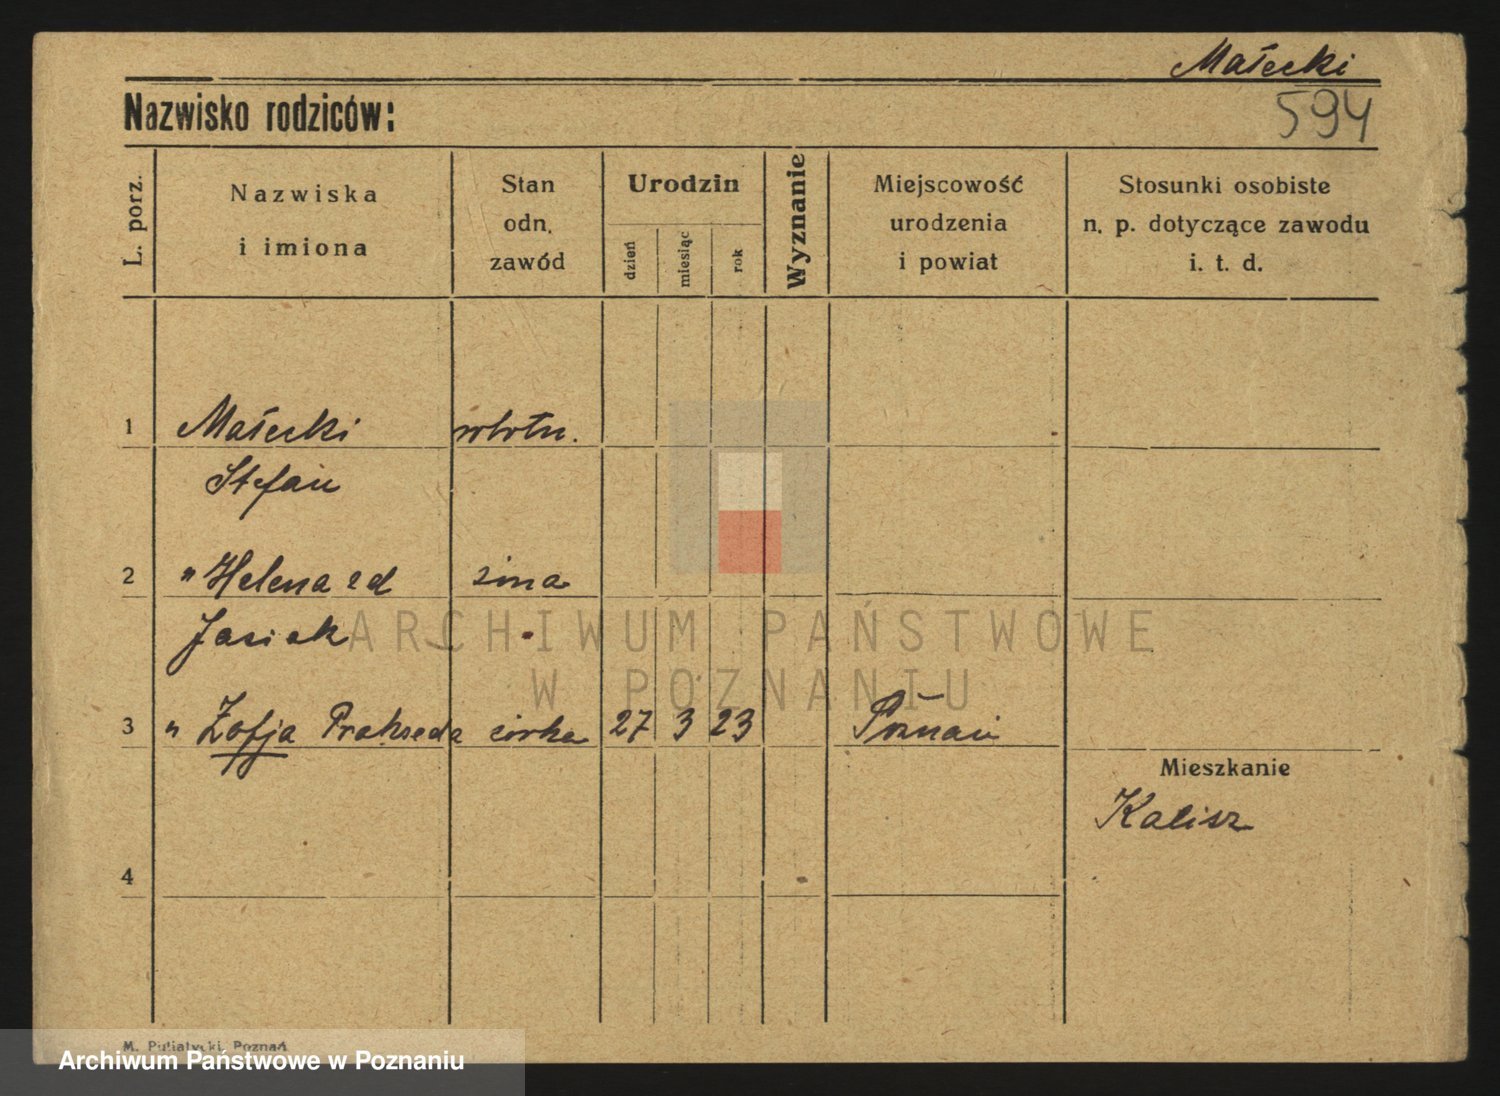 Małecki
Nazwisko rodziców:
594
L. porz.
Nazwiska
i imiona
Stan
odn.
zawód
Urodzin
dzień
miesiąc
rok
Wyznanie
Miejscowość
urodzenia
i powiat
Stosunki osobiste
n. p. dotyczące zawodu
i. t. d.
1 Małecki
Stefan
2 " Helena zd żona
Jasiak
ARCHIWUM PAŃSTWOWE
W POZNANIU
3 " Zofja Prakseda córka 27 3 23 Poznań
Mieszkanie
Kalisz
4
M. Putiatycki, Poznań
Archiwum Państwowe w Poznaniu